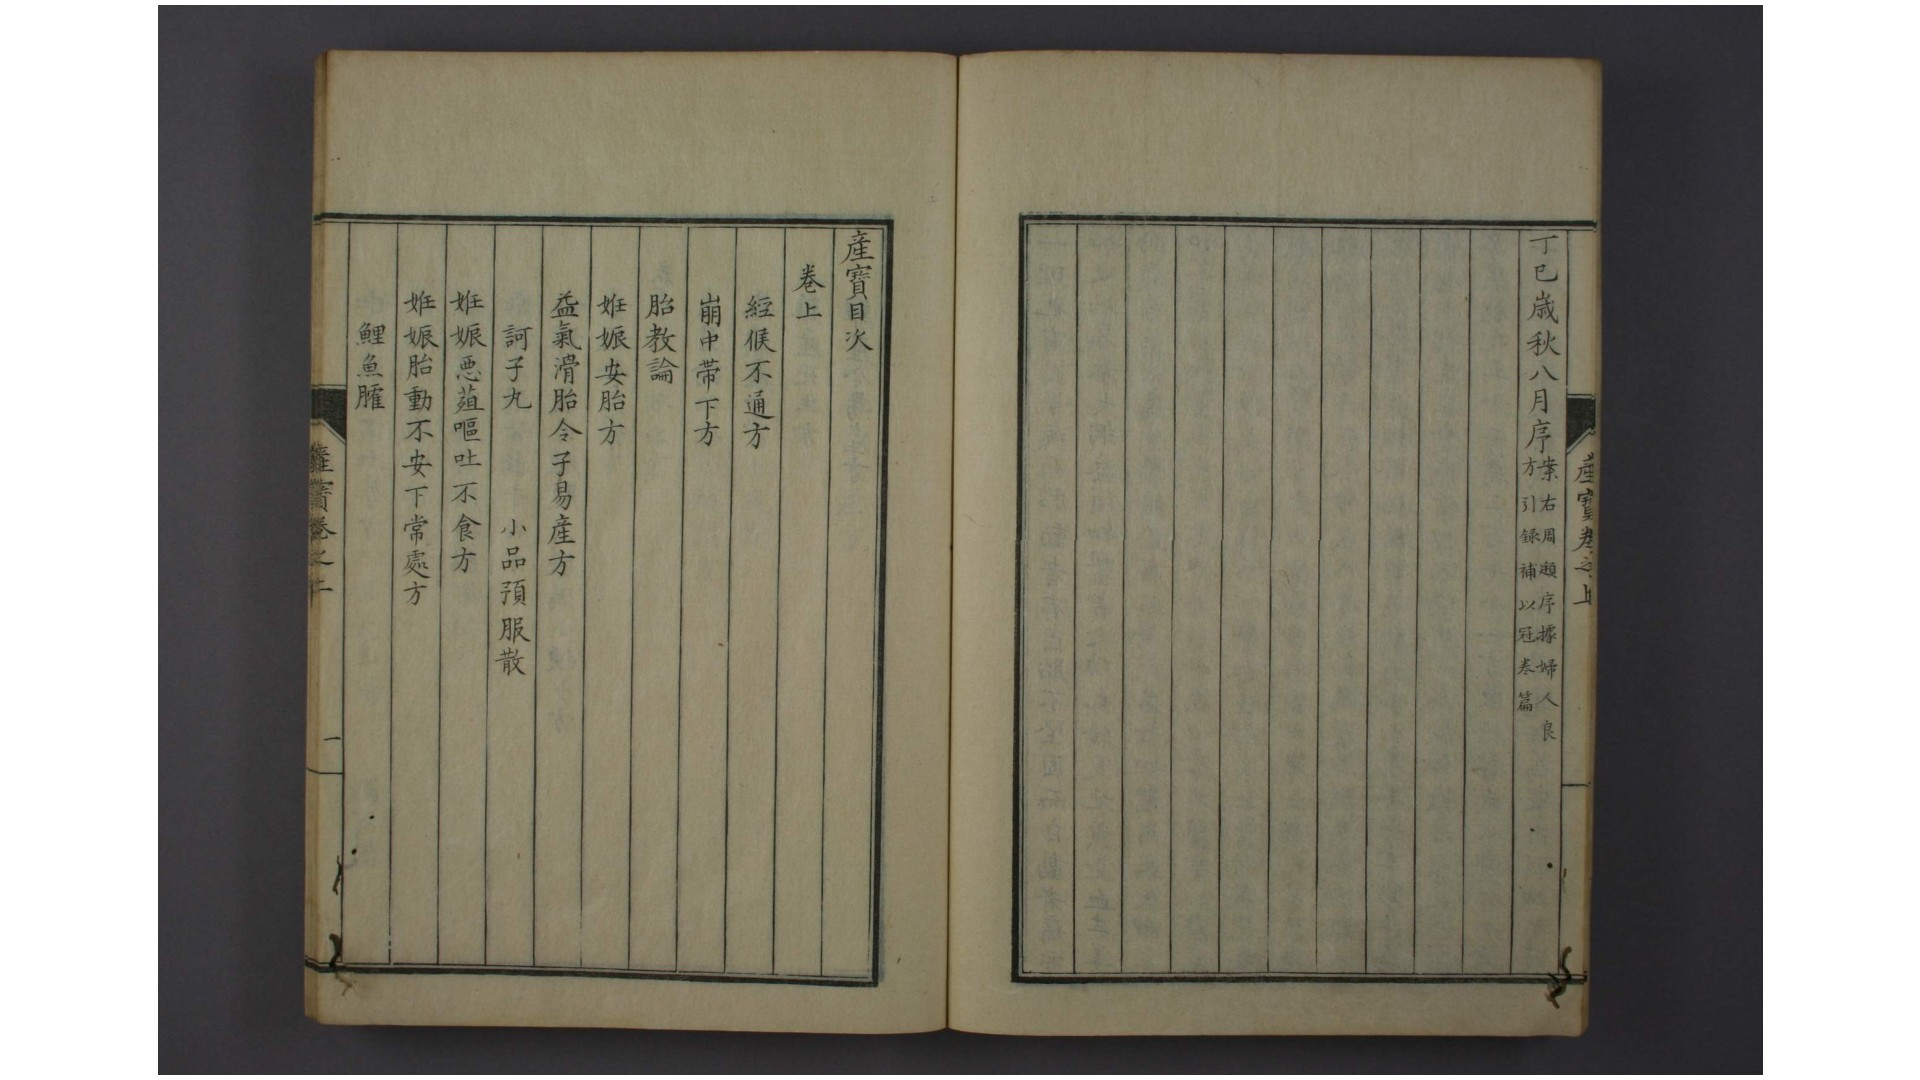 丁巳歳秋八月序
案右周頲序據婦人良
方引録補以冠巻篇
産寶卷之上
産寶目次
巻上
經候不通方
崩中帯下方
胎教論
姙娠安胎方
益氣滑胎令子易産方
訶子丸 小品預服散
姙娠悪葅嘔吐不食方
姙娠胎動不安下常處方
鯉魚臛
産寶卷之上
一